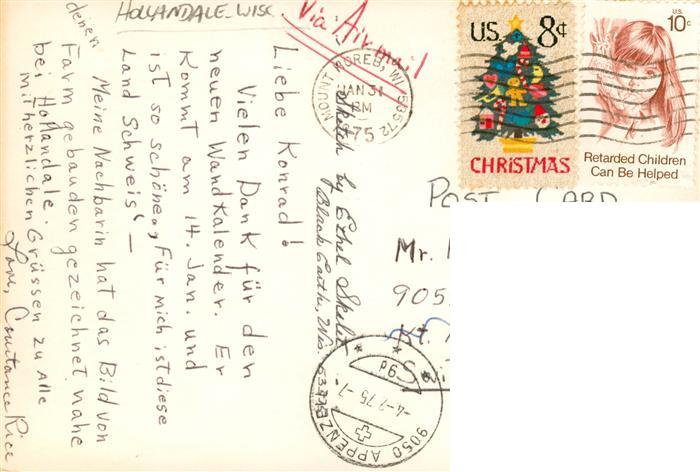 HOLLANDALE-WISC
Via: Air mail
Liebe Konrad!
Vielen Dank für den
neuen Wandkalender. Er
Kommt am 14. Jan. und
ist so schöne, Für mich ist diese
Land Schweis" —
Meine Nachbarin hat das Bild von
denen
Farm gebauden gezeichnet nahe
bei Hollandale.
mit herzlichen Grüssen zu Alle
Love, Constance Rice
Sketch by Ethel Skelit
Black Earth, Wis. 53
MOUNT HOREB, WI 53572
JAN 31
PM
1975
U.S. 8¢
CHRISTMAS
U.S.
10c
Retarded Children
Can Be Helped
POST CARD
Mr.
905
Kt.
9050 APPENZ
-4.-2.75-7